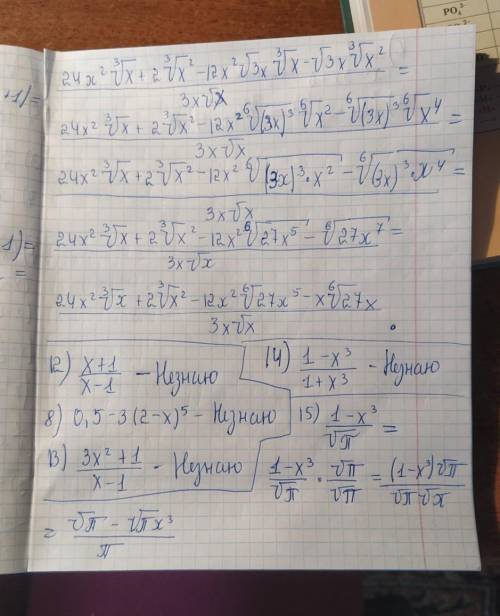 PO₄
24x² ∛x + 2 ∛x² - 12x² √3x ∛x - √3x ∛x² / 3x√x =
24x² ∛x + 2 ∛x² - 12x² ⁶√(3x)³ ⁶√x² - ⁶√(3x)³ ⁶√x⁴ / 3x√x =
24x² ∛x + 2∛x² - 12x² ⁶√(3x)³·x² - ⁶√(3x)³·x⁴ / 3x√x =
24x² ∛x + 2∛x² - 12x² ⁶√27x⁵ - ⁶√27x⁷ / 3x√x =
24x² ∛x + 2∛x² - 12x² ⁶√27x⁵ - x ⁶√27x / 3x√x
12) x+1 / x-1 - Незнаю
14) 1-x³ / 1+x³ - Незнаю
8) 0,5-3(2-x)⁵ - Незнаю
15) 1-x³ / √π =
13) 3x²+1 / x-1 - Незнаю
1-x³ / √π · √π / √π = (1-x³)√π / √π √x
= √π - √π x³ / π